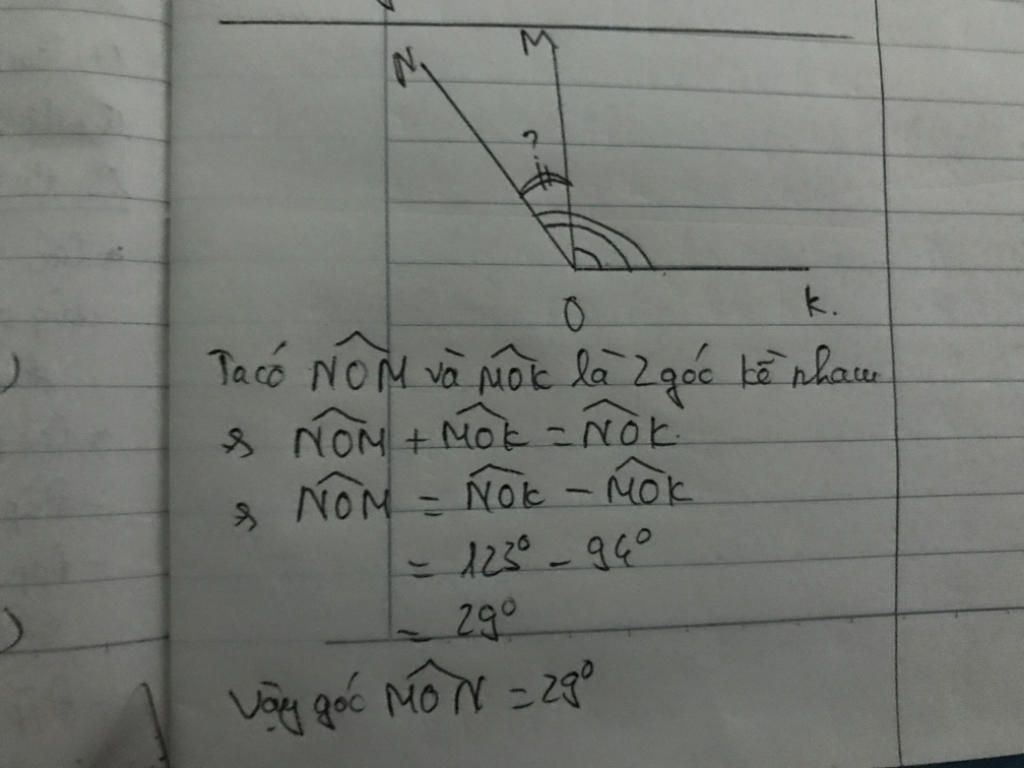 N M
?
O K.
Ta có N̂OM và M̂OK là 2 góc kề nhau
=> N̂OM + M̂OK = N̂OK.
=> N̂OM = N̂OK - M̂OK
= 123° - 94°
= 29°
Vậy góc M̂ON = 29°
)
)